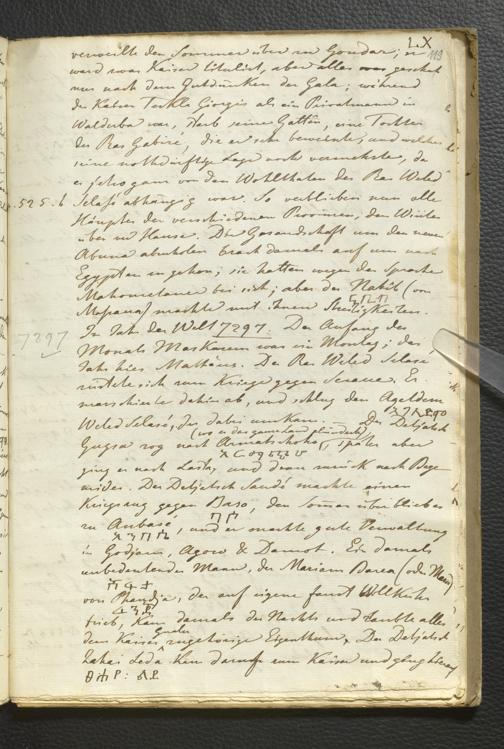 LX
119
verweilte den Sommer über zu Gondar; er
ward zwar Kaiser titulirt, aber alles geschah
nur nach dem Gutdünken der Gala; während
der Kaiser Teckle Giorgis als ein Privatmann in
Waldubba war, starb seine Gattin, eine Tochter
des Ras Gabire, die er sehr beweinte, und welches
seine nothdürftige Lage noch vermehrte, da
er schon ganz von den Wohlthaten des Ras Weled
525. b Selasé abhängig war. So verblieben nun alle
Häupter der verschiedenen Provinzen, den Winter
über zu Hause. Die Gesandschaft um den neuen
Abuna abzuholen brach damals auf um nach
Egypten zu gehen; sie hatten wegen der Sprache
Mahometaner bei sich; aber der Nahib (von
Massaua) machte mit ihnen Streitigkeiten.
7297 Im Jahr der Welt 7297. Der Anfang des
Monats Maskarem war ein Montag; das
Jahr hies Mathäus. Der Ras Weled Selasé
rüstete sich zum Kriege gegen Seraue. Er
marschierte dahin ab, und schlug den
Weled Selasé, der dabei umkam. Der Detjatsch
(wo er das ganze Land plünderte)
Gugsa zog nach, später aber
ging er nach Lasta, und dann zurück nach Bege
mider. Der Detjatsch machte einen
Kriegszug gegen Baso, den Sommer über blieb er
zu Ambaso, und er machte gute Verwaltung
in Godjam, Agow & Damot. Ein damals
unbedeutender Mann, der Mariam Barea (od.
von, der auf eigene faust Willkühr
trieb, kam damals des Nachts und raubte alles
dem Kaiser Gualu zugehörige Eigenthum. Der Detjatsch
kam darauf zum Kaiser und